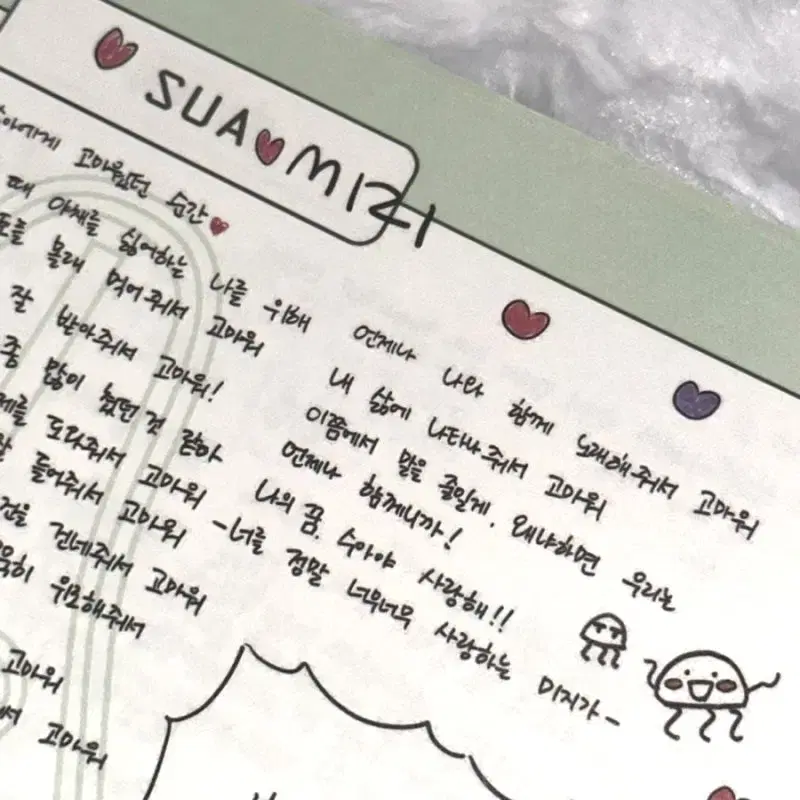 SUA MIZI
고마웠던 순간
때 야채를 싫어하는 나를 위해
몰래 먹어줘서 고마워
잘 받아줘서 고마워!
많이 했던 것 같아
도와줘서 고마워
들어줘서 고마워
건네줘서 고마워
위로해줘서
고마워
고마워
언제나 나와 함께 노래해줘서 고마워
내 삶에 나타나줘서 고마워
이쯤에서 말을 줄일게. 왜냐하면 우리는
언제나 함께니까!
나의 꿈. 수아야 사랑해!!
-너를 정말 너무너무 사랑하는 미지가-